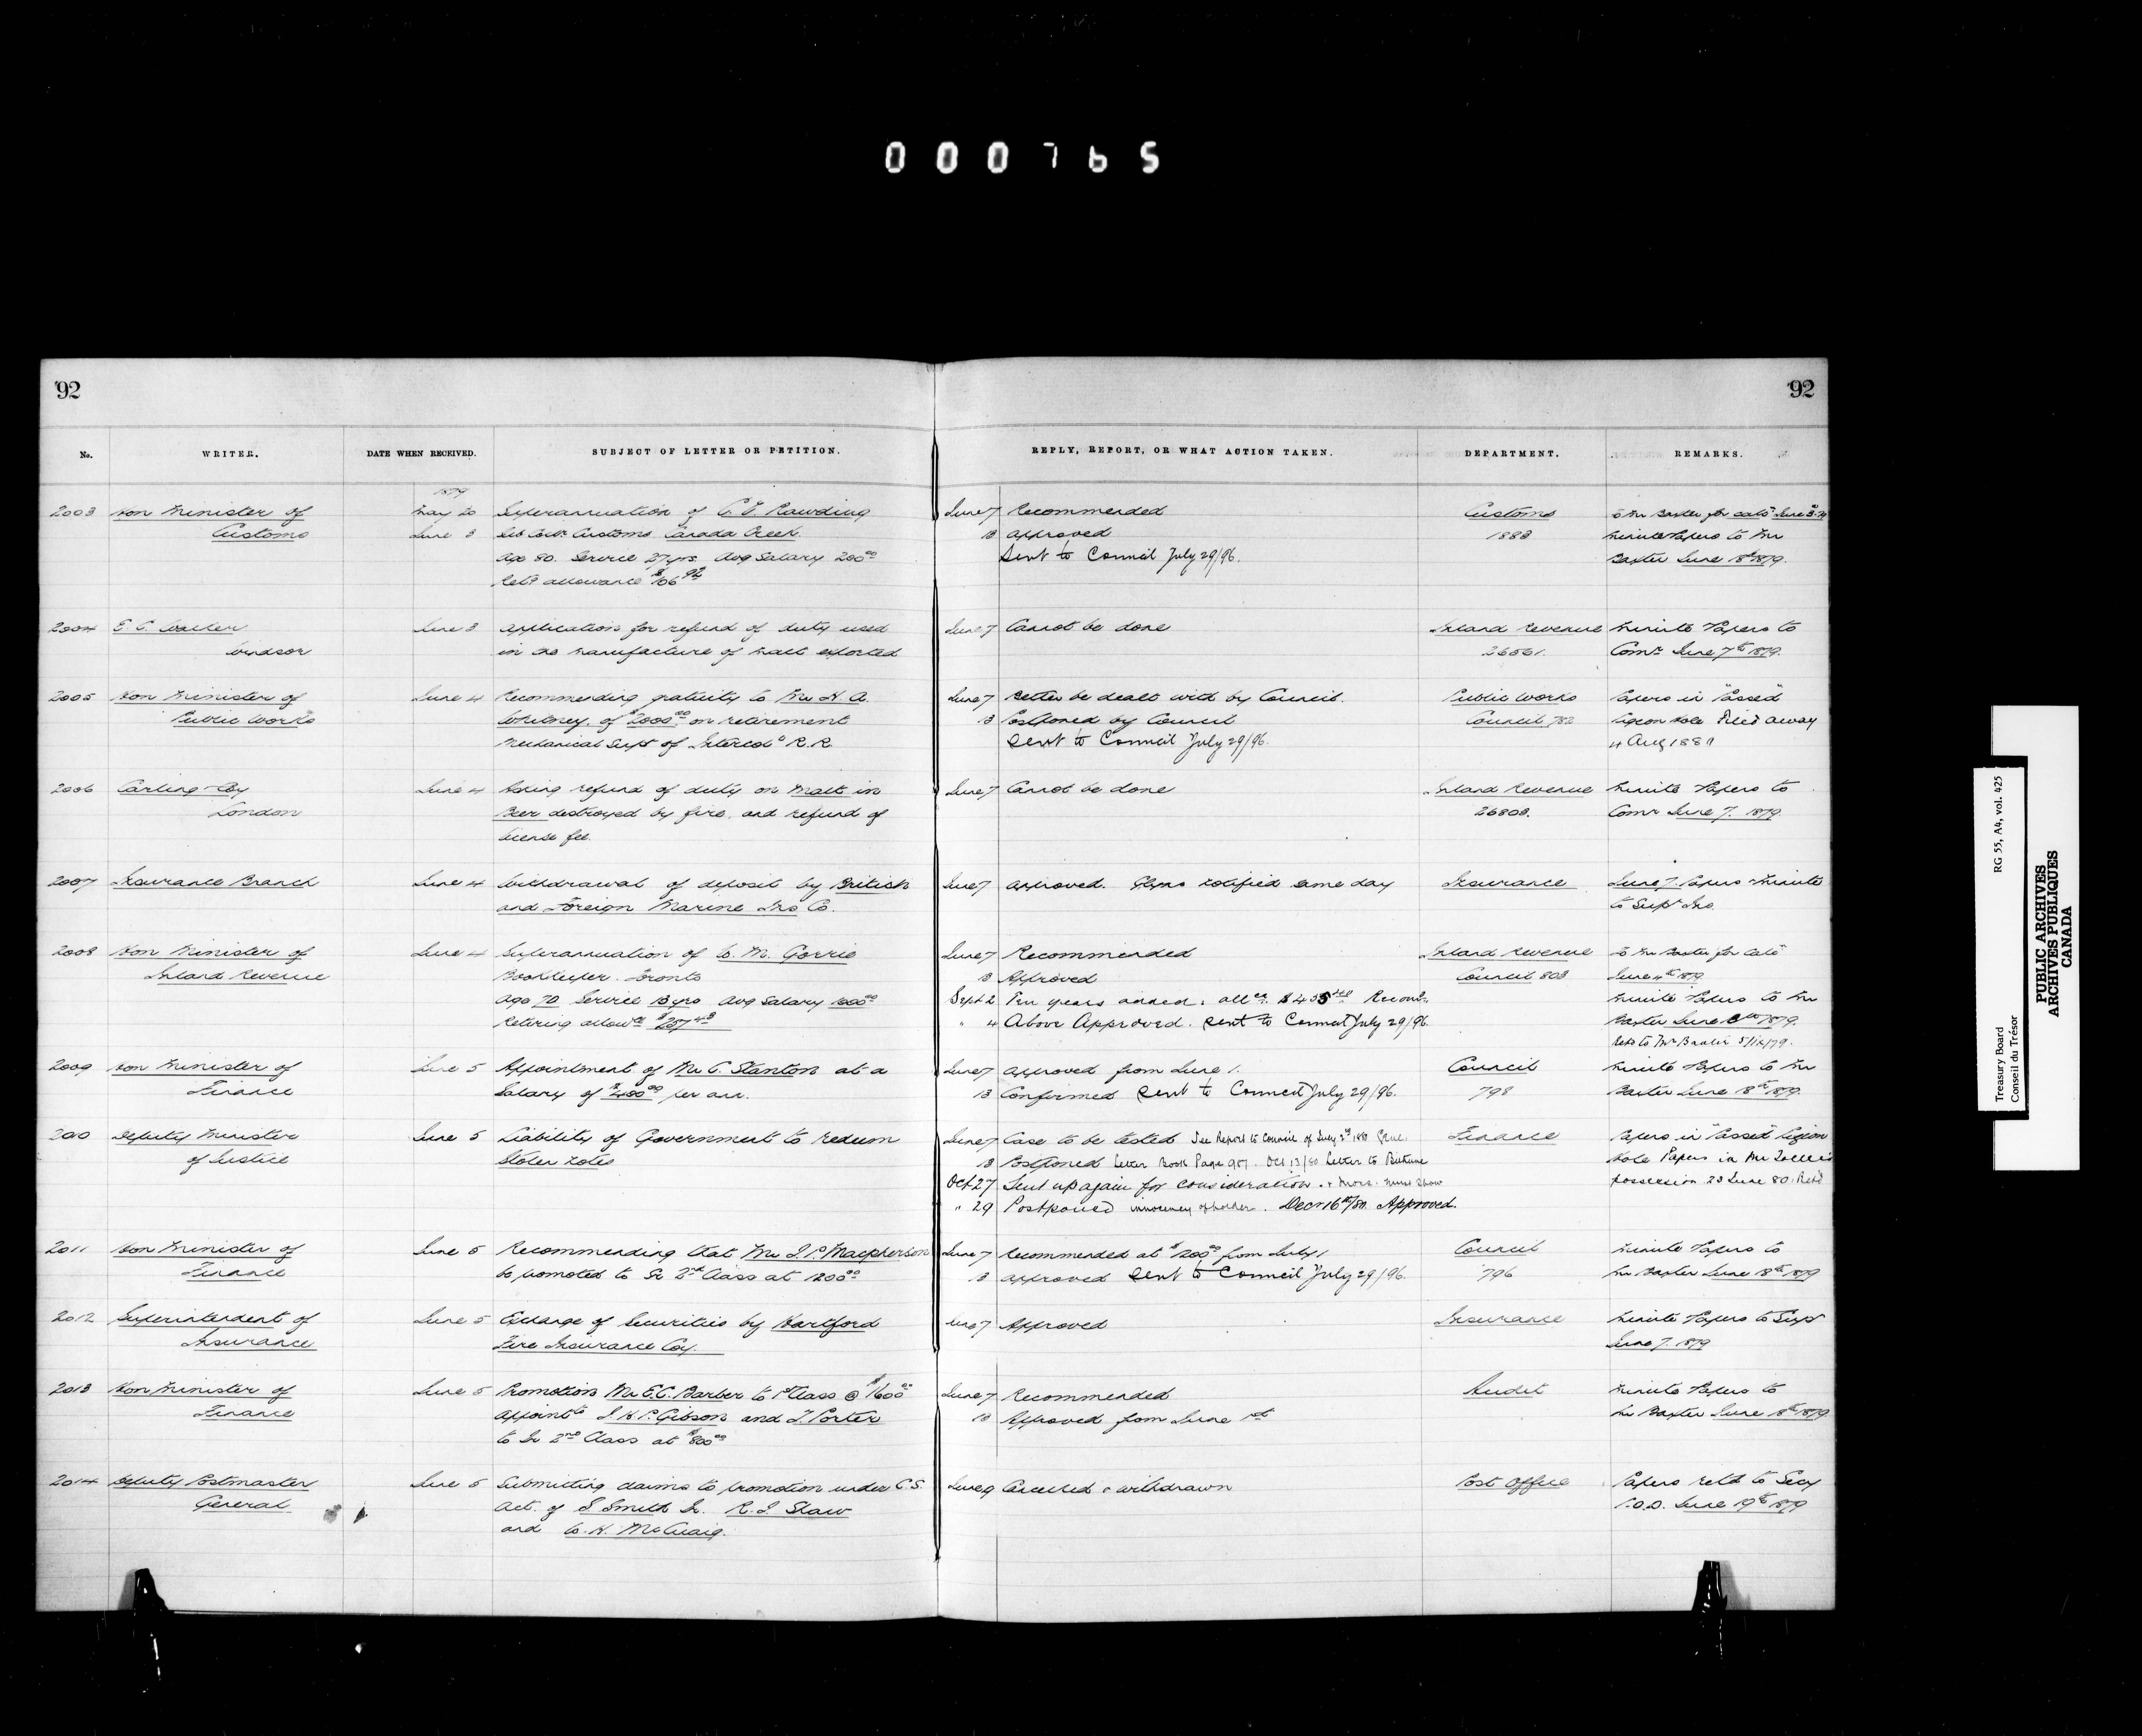 000765
92
92
No. WRITER. DATE WHEN RECEIVED. SUBJECT OF LETTER OR PETITION. REPLY, REPORT, OR WHAT ACTION TAKEN. DEPARTMENT. REMARKS.
1879
2003 Hon Minister of May 20 Superannuation of C. E. Rawding June 7 Recommended Customs To Mr Baxter for calc June 3 79
Customs June 3 Sub Coll Customs Canada Creek. 13 approved 1883 Minute Papers to Mr
Age 80. Service 27 yrs. Avg Salary 200 00 Sent to Council July 29/96. Baxter June 18th 1879.
Ret allowance $106 92
2004 E. C. Walker June 3 Application for refund of duty used June 7 Cannot be done Inland Revenue Minute Papers to
Windsor in the manufacture of malt exported 26561. Comr June 7th 1879.
2005 Hon Minister of June 4 Recommending gratuity to Mr H. A. June 7 Better be dealt with by Council. Public Works Papers in "Passed"
Public Works Whitney, of $2000 00 on retirement 13 Postponed by Council Council 782 Pigeon Hole Filed away
Mechanical Supt of Intercol R.R. Sent to Council July 29/96. 4 Aug 1881
2006 Carling Coy June 4 Asking refund of duty on Malt in June 7 Cannot be done Inland Revenue Minute Papers to
London Beer destroyed by fire, and refund of 26808. Comr June 7. 1879.
license fee.
2007 Insurance Branch June 4 Withdrawal of deposit by British June 7 approved. notified same day Insurance June 7. Papers & Minute
and Foreign Marine Ins Co. to Supt Ins.
2008 Hon Minister of June 4 Superannuation of W. M. Gorrie June 7 Recommended Inland Revenue To Mr Baxter for Calc
Inland Revenue Bookkeeper. Toronto 13 Approved Council 803 June 4th 1879
Age 70 Service 13 yrs Avg Salary 1000 00 Sept 2 Ten years added. all ce. $435 Recom. Minute Papers to Mr
Retiring allow ce $257 43 " 4 Above Approved. Sent to Council July 29/96. Baxter June 1879.
Retd to Mr Baxter
2009 Hon Minister of June 5 Appointment of Mr C. Stanton at a June 7 approved from June 1. Council Minute Papers to Mr
Finance Salary of $400 00 per ann. 13 Confirmed Sent to Council July 29/96. 798 Baxter June 18th 1879.
2010 Deputy Minister June 5 Liability of Government to redeem June 7 Case to be tested See Report to Council of Finance Papers in "Passed" Pigeon
of Justice Stolen notes 13 Postponed Letter Book Page 987. Oct 13/80 Letter to Bethune Hole Papers in Mr
Oct 27 Sent up again for consideration. must show possession 23 June 80. Retd
" 29 Postponed innocency of holder. Decr 16th/80. Approved.
2011 Hon Minister of June 5 Recommending that Mr J. P. Macpherson June 7 Recommended at $1200 00 from July 1 Council Minute Papers to
Finance be promoted to Sr 2nd Class at 1200 00 13 approved Sent to Council July 29/96. 796 Mr Baxter June 18th 1879
2012 Superintendent of June 5 Exchange of Securities by Hartford June 7 Approved Insurance Minute Papers to Supt
Insurance Fire Insurance Coy. June 7. 1879
2013 Hon Minister of June 5 Promotion Mr E.C. Barber to 1st Class @ $1600 00 June 7 Recommended Audit Minute Papers to
Finance Appoint J. H. P. Gibson and J. Porter 13 Approved from June 1st Mr Baxter June 18th 1879
to Jr 2nd Class at $800 00
2014 Deputy Postmaster June 5 Submitting claims to promotion under C.S. June 9 Cancelled & withdrawn Post Office Papers retd to Secy
General Act. of S Smith Jr. R. J. Shaw P.O.D. June 19th 1879
and W. H. McCuaig.
RG 55, A4, vol. 425
Treasury Board
Conseil du Trésor
PUBLIC ARCHIVES
ARCHIVES PUBLIQUES
CANADA